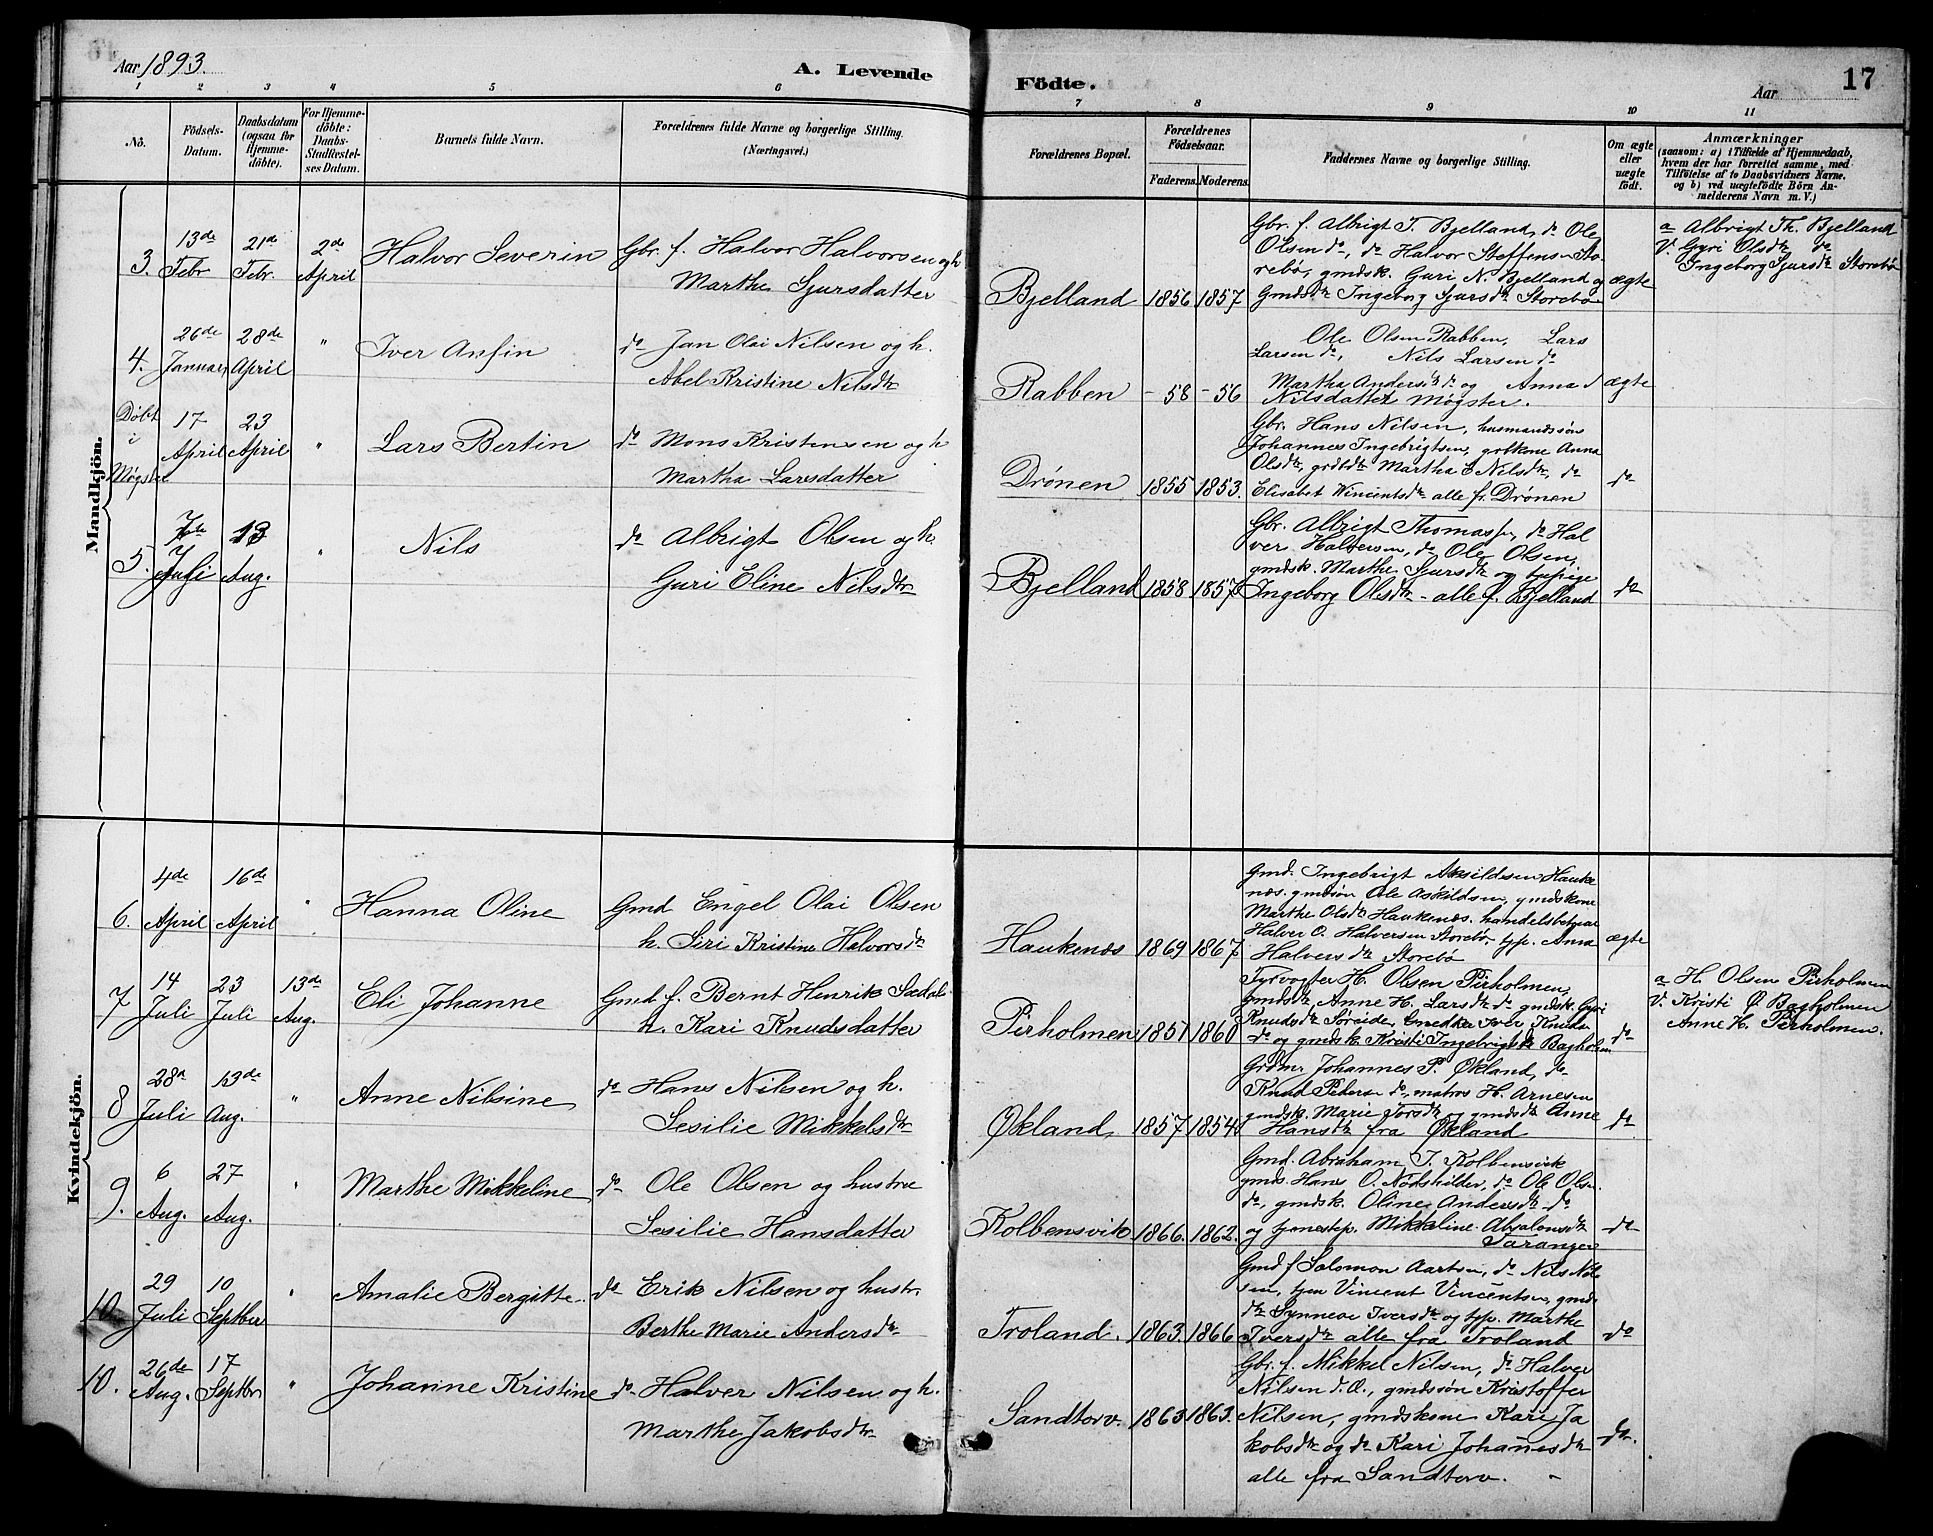 Aar 1893.
A. Levende
Födte.
Aar
17
1
2
3
4
5
6
7
8
9
10
11
No.
Födsels-
Datum.
Daabsdatum
(ogsaa for
Hjemme-
döbte).
For Hjemme-
döbte:
Daabs-
Stadfæstel-
ses Datum.
Barnets fulde Navn.
Forældrenes fulde Navne og borgerlige Stilling.
(Næringsvei.)
Forældrenes Bopæl.
Forældrenes
Födselsaar.
Faderens.
Moderens.
Faddernes Navne og borgerlige Stilling.
Om ægte
eller
uægte
födt.
Anmærkninger
(saasom: a) i Tilfælde af Hjemmedaab,
hvem der har forrettet samme, med
Tilföielse af to Daabsvidners Navne,
og b) ved uægtefödte Börn An-
melderens Navn m. V.)
Mandkjön.
3. 13de Febr 21de Febr. 2de April
Halvor Severin
Gbr. f. Halvor Halvorsen og h
Marthe Sjursdatter
Bjelland 1856 1857
Gbr. f. Albrigt T. Bjelland, do Ole
Olsen do, do Halvor Steffensen Sto-
rebø, gmdsk. Guri N. Bjelland og
Gmdsdtr Ingeborg Sjursdtr Storebø
ægte
a Albrigt Th. Bjelland
V. Gyri Olsdtr do
Ingeborg Sjursdtr Storebø
4. 26de Januar 28de April "
Iver Anfin
do Jan Olai Nilsen og h.
Abel Kristine Nilsdtr
Rabben - 58 - 56
Ole Olsen Rabben, Lars
Larsen do, Nils Larsen do
Martha Andersdtr do og Anna
Nilsdatter Møgster.
ægte
Døbt
i
Møgster
17 April 23 April "
Lars Bertin
do Mons Kristensen og h
Martha Larsdatter
Drønen 1855 1853.
Gbr. Hans Nilsen, husmandssøn
Johannes Ingebrigtsen, Anna
Olsdtr, Martha E Nilsdtr, do
Elisabet Wincentsdtr alle fr. Drønen
do
5. 7de Juli 13 Aug. "
Nils
do Albrigt Olsen og h.
Guri Eline Nilsdtr
Bjelland 1858 1857
Gbr. Albrigt Thomass, do Hal
ver Halversen, do Ole Olsen,
gmdsk. Marthe Sjursdtr og tjepige
Ingeborg Olsdtr - alle f. Bjelland
do
Kvindekjön.
6. 4de April 16de April "
Hanna Oline
Gmd Engel Olai Olsen
h. Siri Kristine Halvorsdtr
Haukenæs 1869 1867
Gmd. Ingebrigt Aksildsen Hauke
næs. gmdsøn Ole Askildsen, gmdskone
Marthe Olsdtr Haukenæs. handelsbetjent
Halver O. Halversen Storebø, tjp. Anna
Halversdtr Storebø
ægte
7 14 Juli 23 Juli 13de Aug.
Eli Johanne
Gmd f. Bernt Henrik
h. Kari Knudsdatter
Pirholmen 1851 1860
Fyrvogter H. Olsen Pirholmen,
Gmdsdtr Anne H. Larsdtr do gmdsk. Gyri
Knudsdtr Søreide, Iver Knuds
do og gmdsk. Kristi Ingebrigtsdtr Bagholm
do
a H. Olsen Pirholmen
V. Kristi Ø Bagholmen
Anne H. Pirholmen.
8 28d Juli 13de Aug. "
Anne Nilsine
do Hans Nilsen og h.
Sesilie Mikkelsdtr
Økland 1857 1854
Grdmr Johannes P. Økland, do
Knud Peders do, matros H. Arnesen
gmdsk. Marie Torsdtr og gmdsdtr Anne
Hansdtr fra Økland
do
9. 6 Aug. 27 Aug. "
Marthe Mikkeline
do Ole Olsen og hustru
Sesilie Hansdatter
Kolbensvik 1866. 1862.
Gmd. Abraham J. Kolbensvik
gmds. Hans O. do Ole Olsn.
do, gmdsk. Oline Andersdtr do
og tjenestep. Mikkeline Absalonsdtr
Taranger
do
10. 29 Juli 10 Septber "
Amalie Bergitte
do Erik Nilsen og hustr.
Berthe Marie Andersdtr
Troland. 1863. 1866
Gmd f Salomon Aartsen, do Nils Nil
sen, tjen Vincent Vincentsen, gmds
dtr Synneve Iversdtr og tjp. Marthe
Iversdtr alle fra Troland
do
10. 26de Aug. 17 Septbr. "
Johanne Kristine
do Halver Nilsen og h.
Marthe Jakobsdtr
Sandtorv 1863 1863.
Gbr. f. Mikkel Nilsen, do Halver
Nilsen d.Æ., gmdssøn Kristoffer
Nilsen, gmdskone Kari Ja
kobsdtr og do Kari Johanesdtr
alle fra Sandtorv.
do.